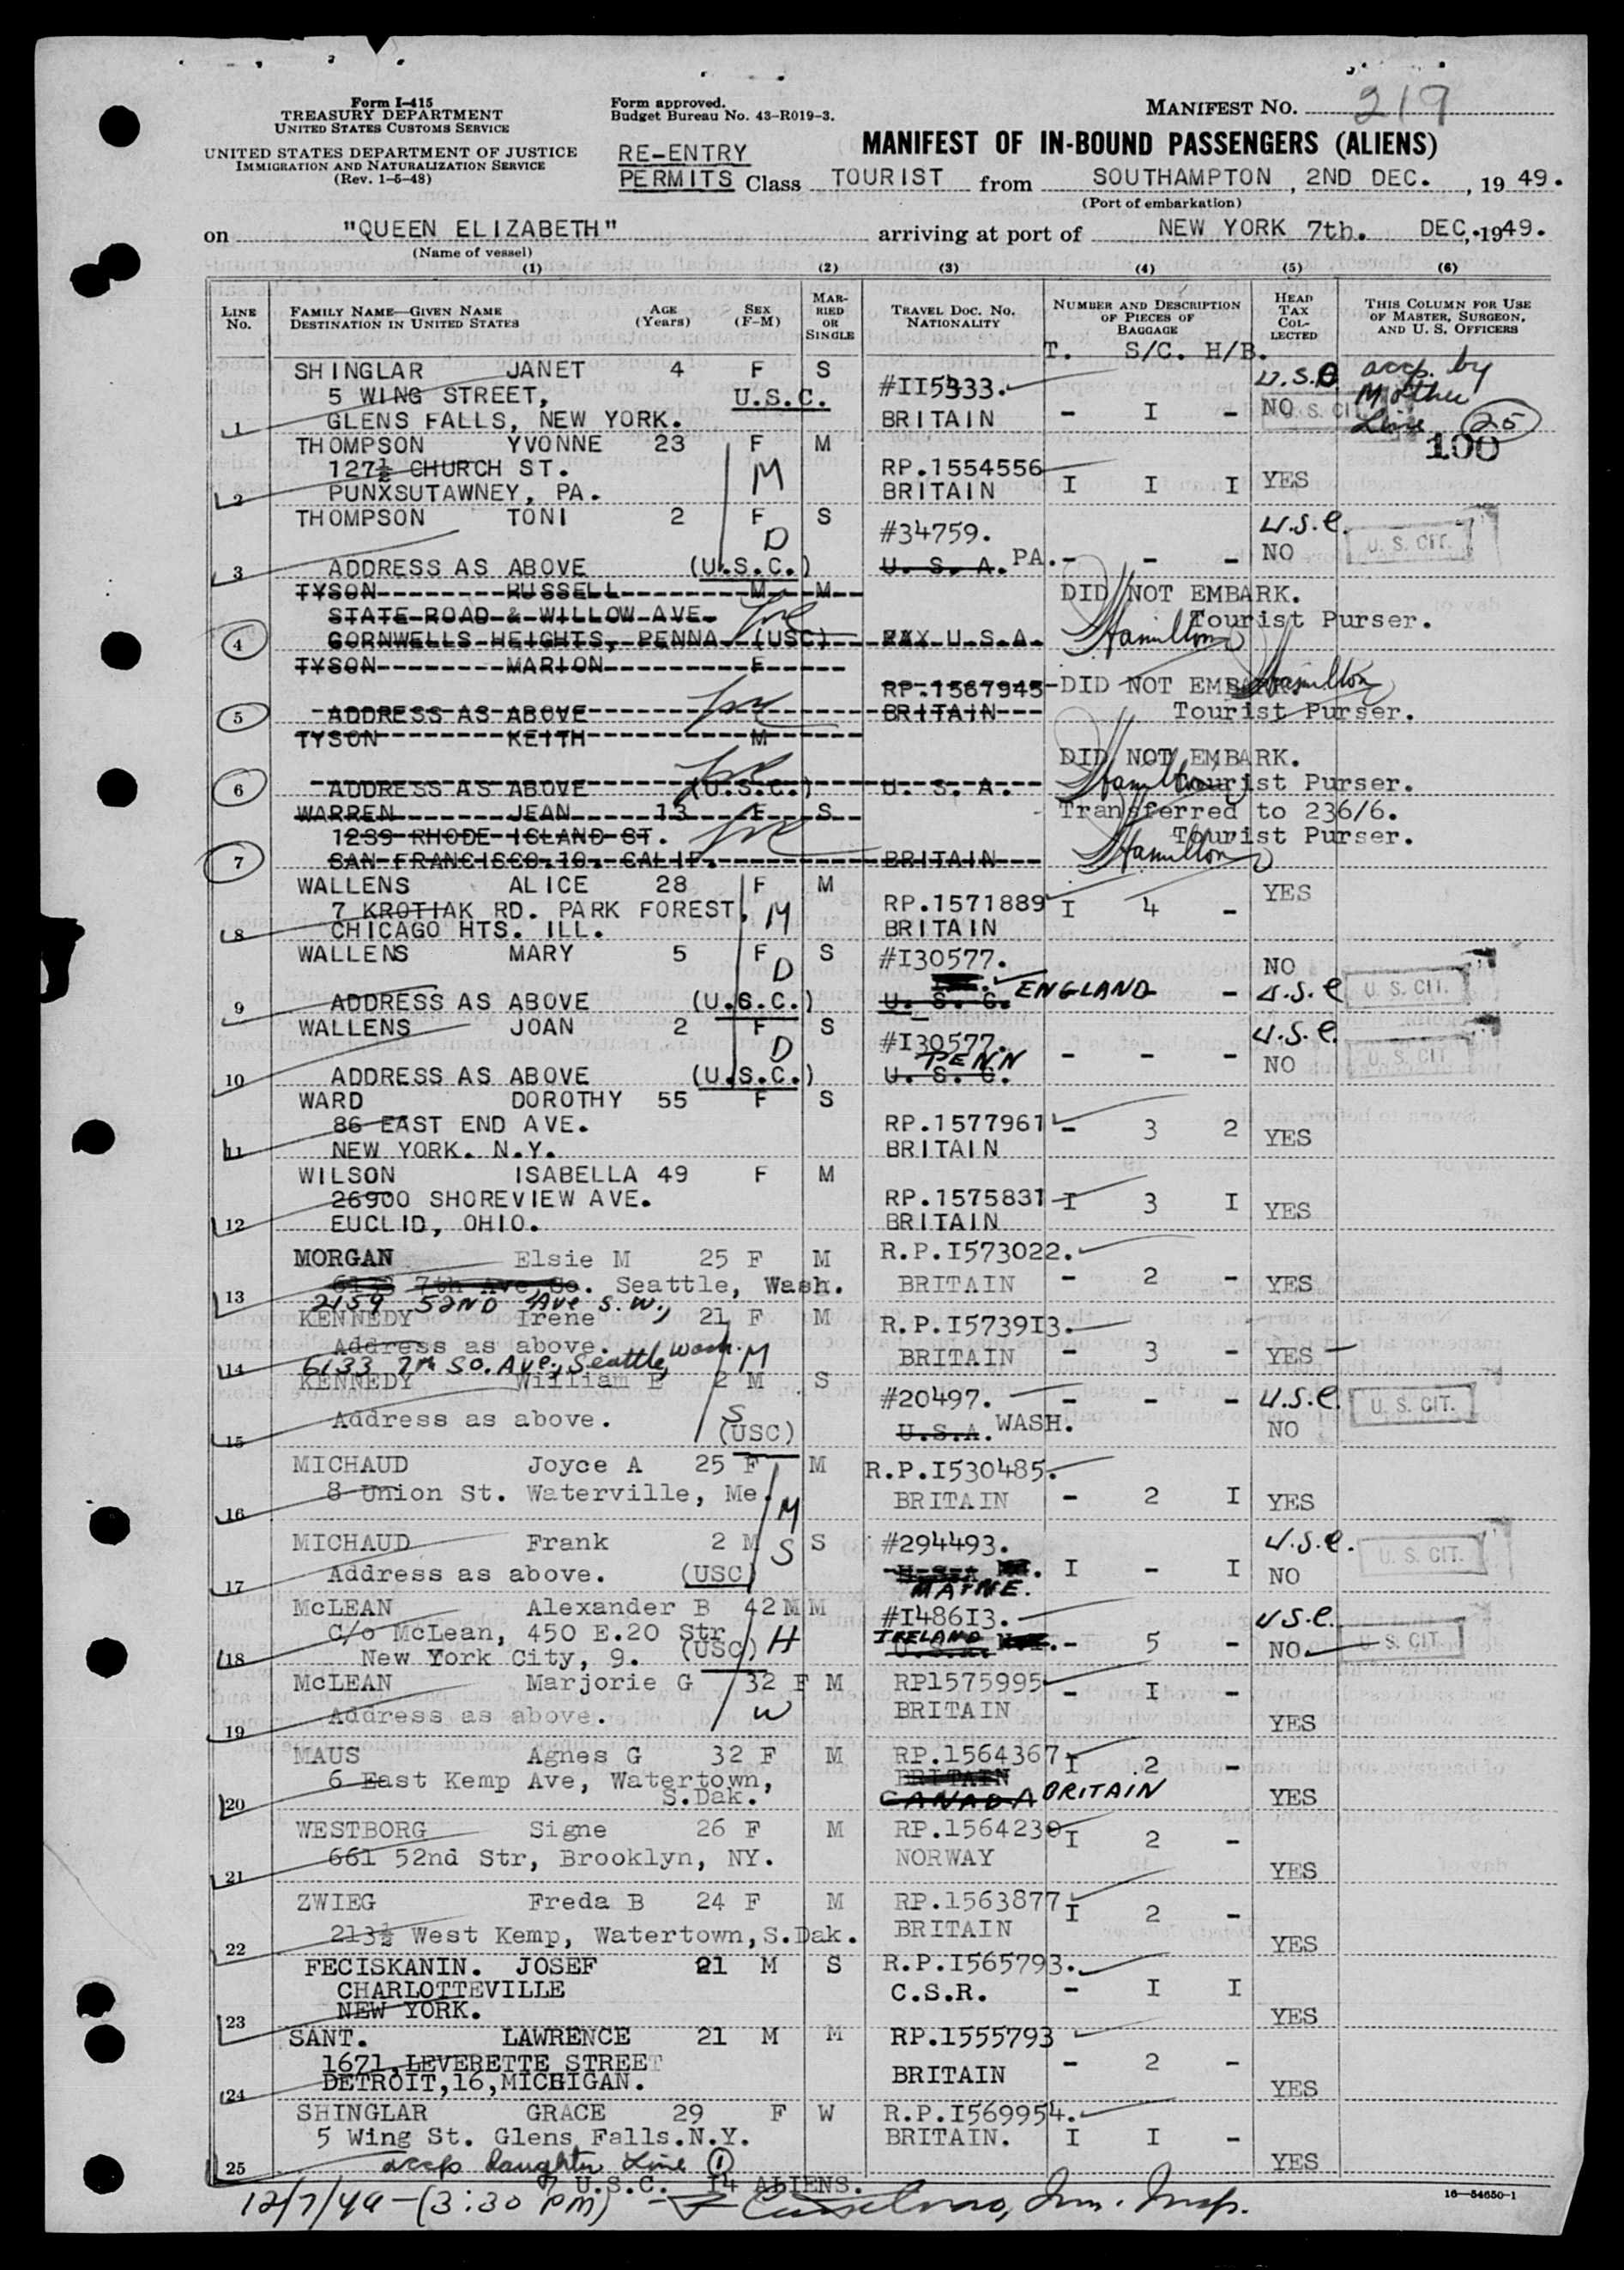 Form I-415
TREASURY DEPARTMENT
UNITED STATES CUSTOMS SERVICE
UNITED STATES DEPARTMENT OF JUSTICE
IMMIGRATION AND NATURALIZATION SERVICE
(Rev. 1-5-48)
Form approved.
Budget Bureau No. 43-R019-3.
MANIFEST NO. 219
MANIFEST OF IN-BOUND PASSENGERS (ALIENS)
RE-ENTRY
PERMITS Class TOURIST from SOUTHAMPTON, 2ND DEC., 1949.
(Port of embarkation)
on "QUEEN ELIZABETH" arriving at port of NEW YORK 7th. DEC, 1949.
(Name of vessel)
(1) (2) (3) (4) (5) (6)
LINE No. FAMILY NAME—GIVEN NAME DESTINATION IN UNITED STATES AGE (Years) SEX (F-M) MARRIED OR SINGLE TRAVEL DOC. NO. NATIONALITY NUMBER AND DESCRIPTION OF PIECES OF BAGGAGE HEAD TAX COLLECTED THIS COLUMN FOR USE OF MASTER, SURGEON, AND U. S. OFFICERS
T. S/C. H/B.
SHINGLAR JANET 4 F S #II5333. U.S.C accp. by
5 WING STREET, U.S.C. Mother
1 GLENS FALLS, NEW YORK. BRITAIN - I - NO U. S. CIT. Line (25)
THOMPSON YVONNE 23 F M 100
127½ CHURCH ST. M RP.1554556
2 PUNXSUTAWNEY, PA. BRITAIN I I I YES
THOMPSON TONI 2 F S U.S.C.
D #34759. U. S. CIT.
3 ADDRESS AS ABOVE (U.S.C.) U. S. A. PA. - - - NO
TYSON RUSSELL M M DID NOT EMBARK.
STATE ROAD & WILLOW AVE. Tourist Purser.
4 CORNWELLS HEIGHTS, PENNA (USC) U.S.A. Hamilton
TYSON MARION F
RP.1567945 DID NOT EMBARK. Hamilton
5 ADDRESS AS ABOVE BRITAIN Tourist Purser.
TYSON KEITH M
DID NOT EMBARK.
6 ADDRESS AS ABOVE (U.S.C.) U. S. A. Hamilton Tourist Purser.
WARREN JEAN 13 F S Transferred to 236/6.
1239 RHODE ISLAND ST. Tourist Purser.
7 SAN FRANCISCO.10. CALIF. BRITAIN Hamilton
WALLENS ALICE 28 F M YES
7 KROTIAK RD. PARK FOREST, M RP.1571889 I 4 -
8 CHICAGO HTS. ILL. BRITAIN
WALLENS MARY 5 F S #I30577. NO
D
9 ADDRESS AS ABOVE (U.S.C.) U. S. C. ENGLAND - - U.S.C U. S. CIT.
WALLENS JOAN 2 F S U.S.C.
D #I30577. PENN - - - U. S. CIT
10 ADDRESS AS ABOVE (U.S.C.) U. S. C. NO
WARD DOROTHY 55 F S
86 EAST END AVE. RP.1577961 - 3 2 YES
11 NEW YORK. N.Y. BRITAIN
WILSON ISABELLA 49 F M
26900 SHOREVIEW AVE. RP.1575831 I 3 I YES
12 EUCLID, OHIO. BRITAIN
MORGAN Elsie M 25 F M R.P.I573022.
13 6133 7th Ave So. Seattle, Wash. BRITAIN - 2 - YES
2159 52ND Ave S.W.,
KENNEDY Irene 21 F M R.P.I573913.
Address as above. BRITAIN - 3 - YES
14 6133 7th So. Ave, Seattle, Wash. M
KENNEDY William E 2 M S #20497. - - - U.S.C. U. S. CIT.
15 Address as above. S (USC) U.S.A. WASH. NO
MICHAUD Joyce A 25 F M R.P.I530485.
16 8 Union St. Waterville, Me. M BRITAIN - 2 I YES
MICHAUD Frank 2 M S S #294493. U.S.C. U. S. CIT.
17 Address as above. (USC) U.S.A MAINE. I - I NO
McLEAN Alexander B 42 M M #I486I3. U S.C.
C/o McLean, 450 E.20 Str IRELAND U.S.A. - 5 - NO U. S. CIT
18 New York City, 9. (USC) H
McLEAN Marjorie G 32 F M RP1575995 - I -
19 Address as above. W BRITAIN YES
MAUS Agnes G 32 F M RP.1564367 I 2 -
6 East Kemp Ave, Watertown, BRITAIN
20 S.Dak. CANADA BRITAIN YES
WESTBORG Signe 26 F M RP.1564230 I 2 -
21 661 52nd Str, Brooklyn, NY. NORWAY YES
ZWIEG Freda B 24 F M RP.1563877 I 2 -
22 213½ West Kemp, Watertown,S.Dak. BRITAIN YES
FECISKANIN. JOSEF 21 M S R.P.I565793.
CHARLOTTEVILLE C.S.R. - I I
23 NEW YORK. YES
SANT. LAWRENCE 21 M M RP.1555793
1671,LEVERETTE STREET - 2 -
24 DETROIT,16,MICHIGAN. BRITAIN YES
SHINGLAR GRACE 29 F W R.P.I569954.
5 Wing St. Glens Falls.N.Y. BRITAIN. I I -
25 accp Daughter Line (1) YES
7 U.S.C. 14 ALIENS.
12/7/49 - (3:30 PM) Imm. Insp.
16—54650-1